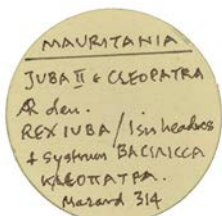 MAURITANIA
JUBA II & CLEOPATRA
AR den.
REX IUBA / Isis headress
+ systrum BACIΛICCA
KΛEOΠATPA.
Mazard 314